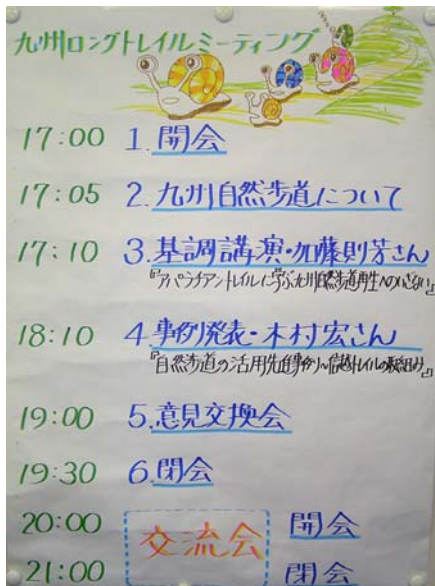 九州ロングトレイルミーティング
17:00 1.開会
17:05 2.九州自然歩道について
17:10 3.基調講演・加藤則芳さん
『アパラチアントレイルに学ぶ九州自然歩道再生へのいざない』
18:10 4.事例発表・木村宏さん
『自然歩道の活用先進事例～信越トレイルの取組み』
19:00 5.意見交換会
19:30 6.閉会
20:00 交流会 開会
21:00 閉会